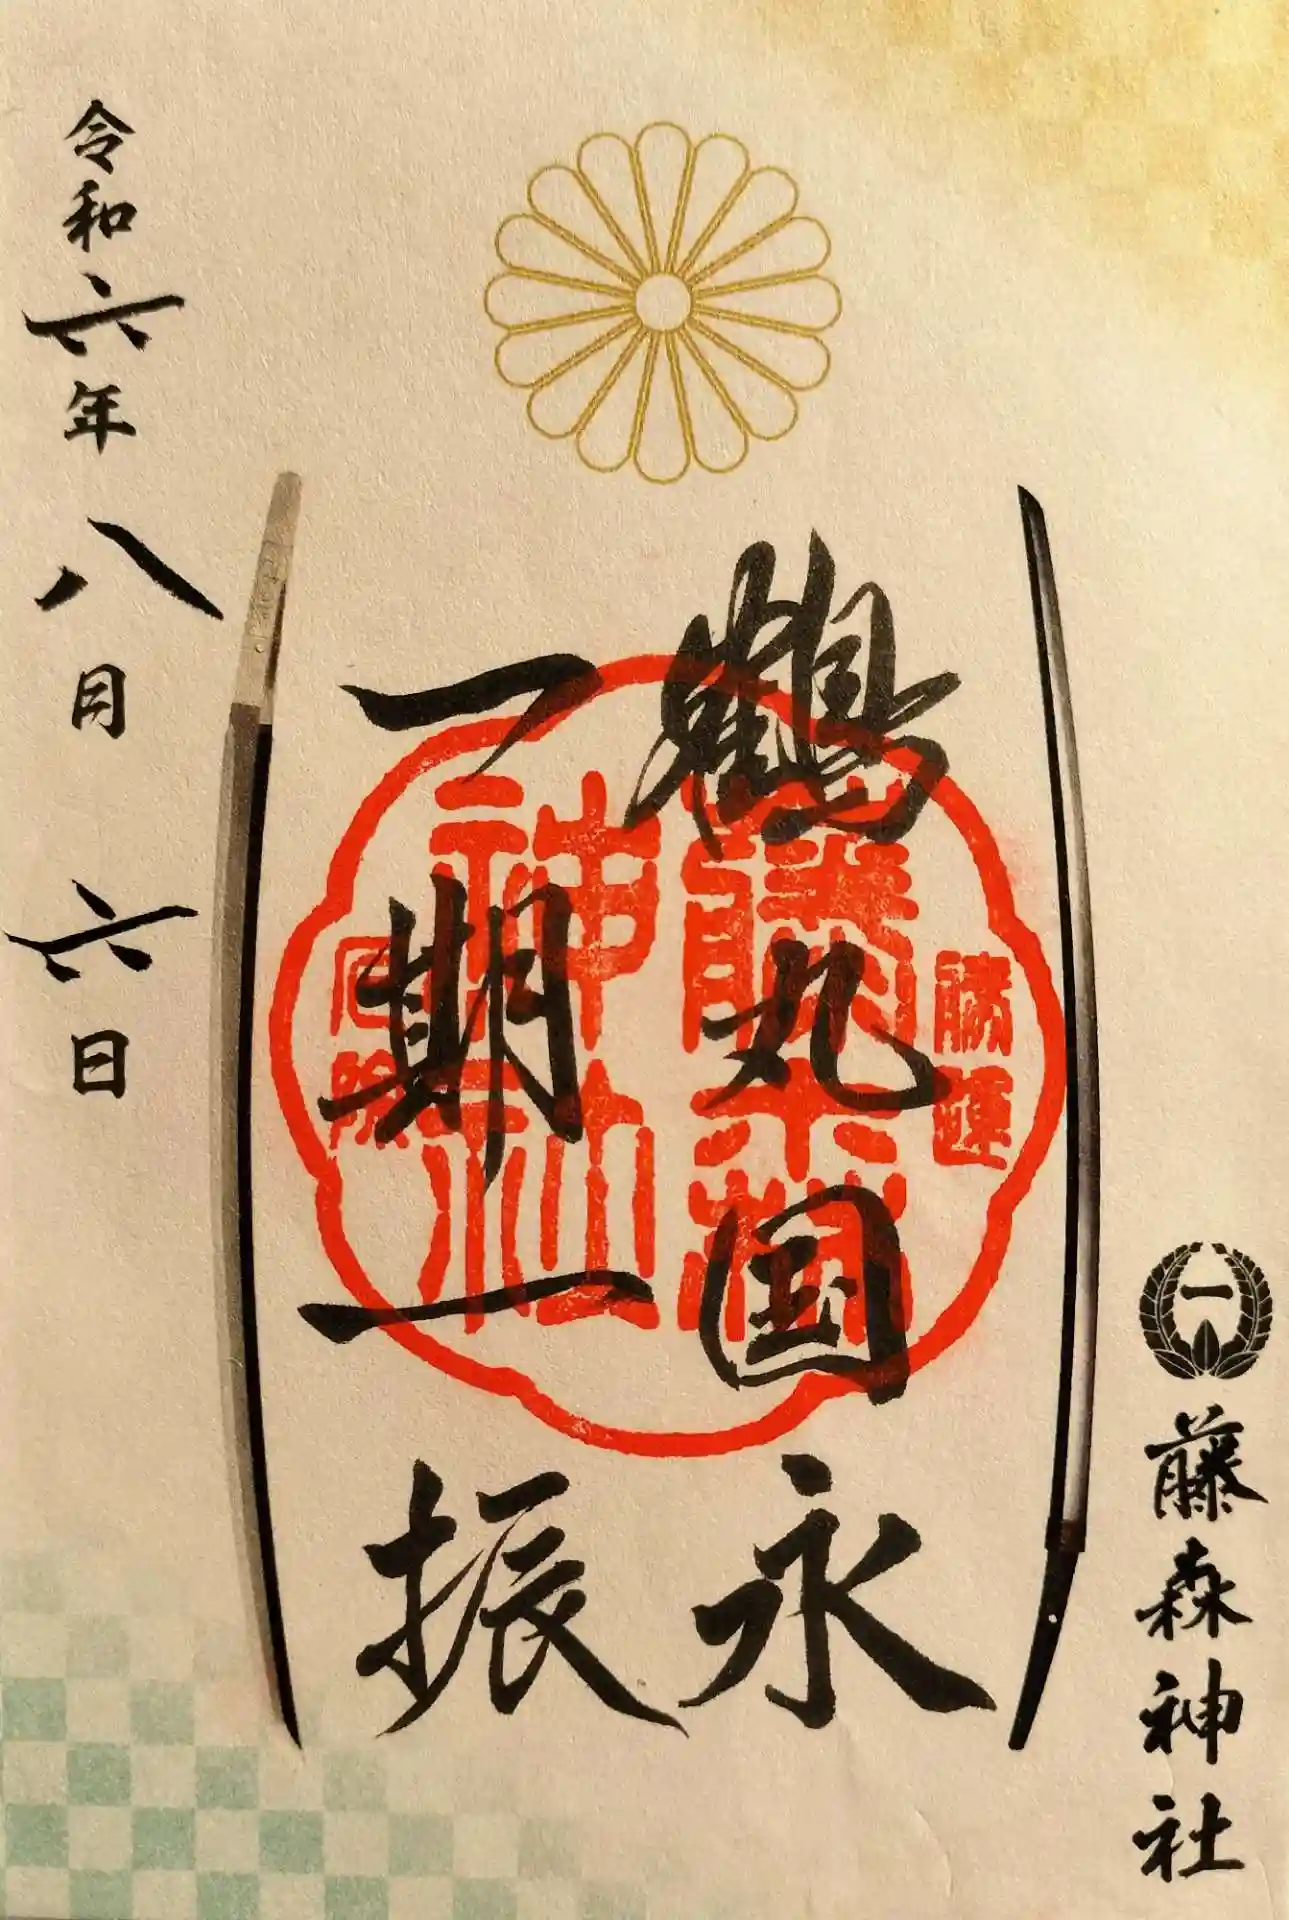 藤森神社
鶴丸国永
一期一振
藤森
神社
勝運
令和六年八月六日